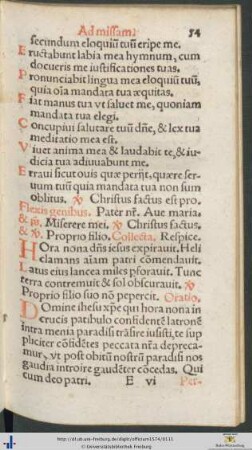 Ad missam. 54
secundum eloquiũ tuũ eripe me.
Eructabunt labia mea hymnum, cum
docueris me iustificationes tuas.
Pronunciabit lingua mea eloquiũ tuũ,
quia oĩa mandata tua æquitas.
Fiat manus tua vt saluet me, quoniam
mandata tua elegi.
Concupiui salutare tuũ dñe, & lex tua
meditatio mea est.
Viuet anima mea & laudabit te, & iu-
dicia tua adiuuabunt me.
Erraui sicut ouis quæ perijt, quære ser-
uum tuũ quia mandata tua non sum
oblitus. ℣ Christus factus est pro.
Flexis genibus. Pater nr̃. Aue maria.
Miserere mei. ℣ Christus factus.
Proprio filio. Collecta. Respice.
Hora nona dñs iesus expirauit. Heli
clamans aĩam patri cõmendauit.
Latus eius lancea miles pforauit. Tunc
terra contremuit & sol obscurauit. ℣
Proprio filio suo nõ pepercit. Oratio.
Domine ihesu xpe qui hora nona in
crucis patibulo confidentẽ latronẽ
intra menia paradisi trãsire iusisti, te sup
pliciter cõfidẽtes peccata nr̃a depreca-
mur, vt post obitũ nostrũ paradisi nos
gaudia introire gaudẽter cõcedas. Qui
cum deo patri. E vi Per-
http://dl.ub.uni-freiburg.de/diglit/officium1574/0111
© Universitätsbibliothek Freiburg